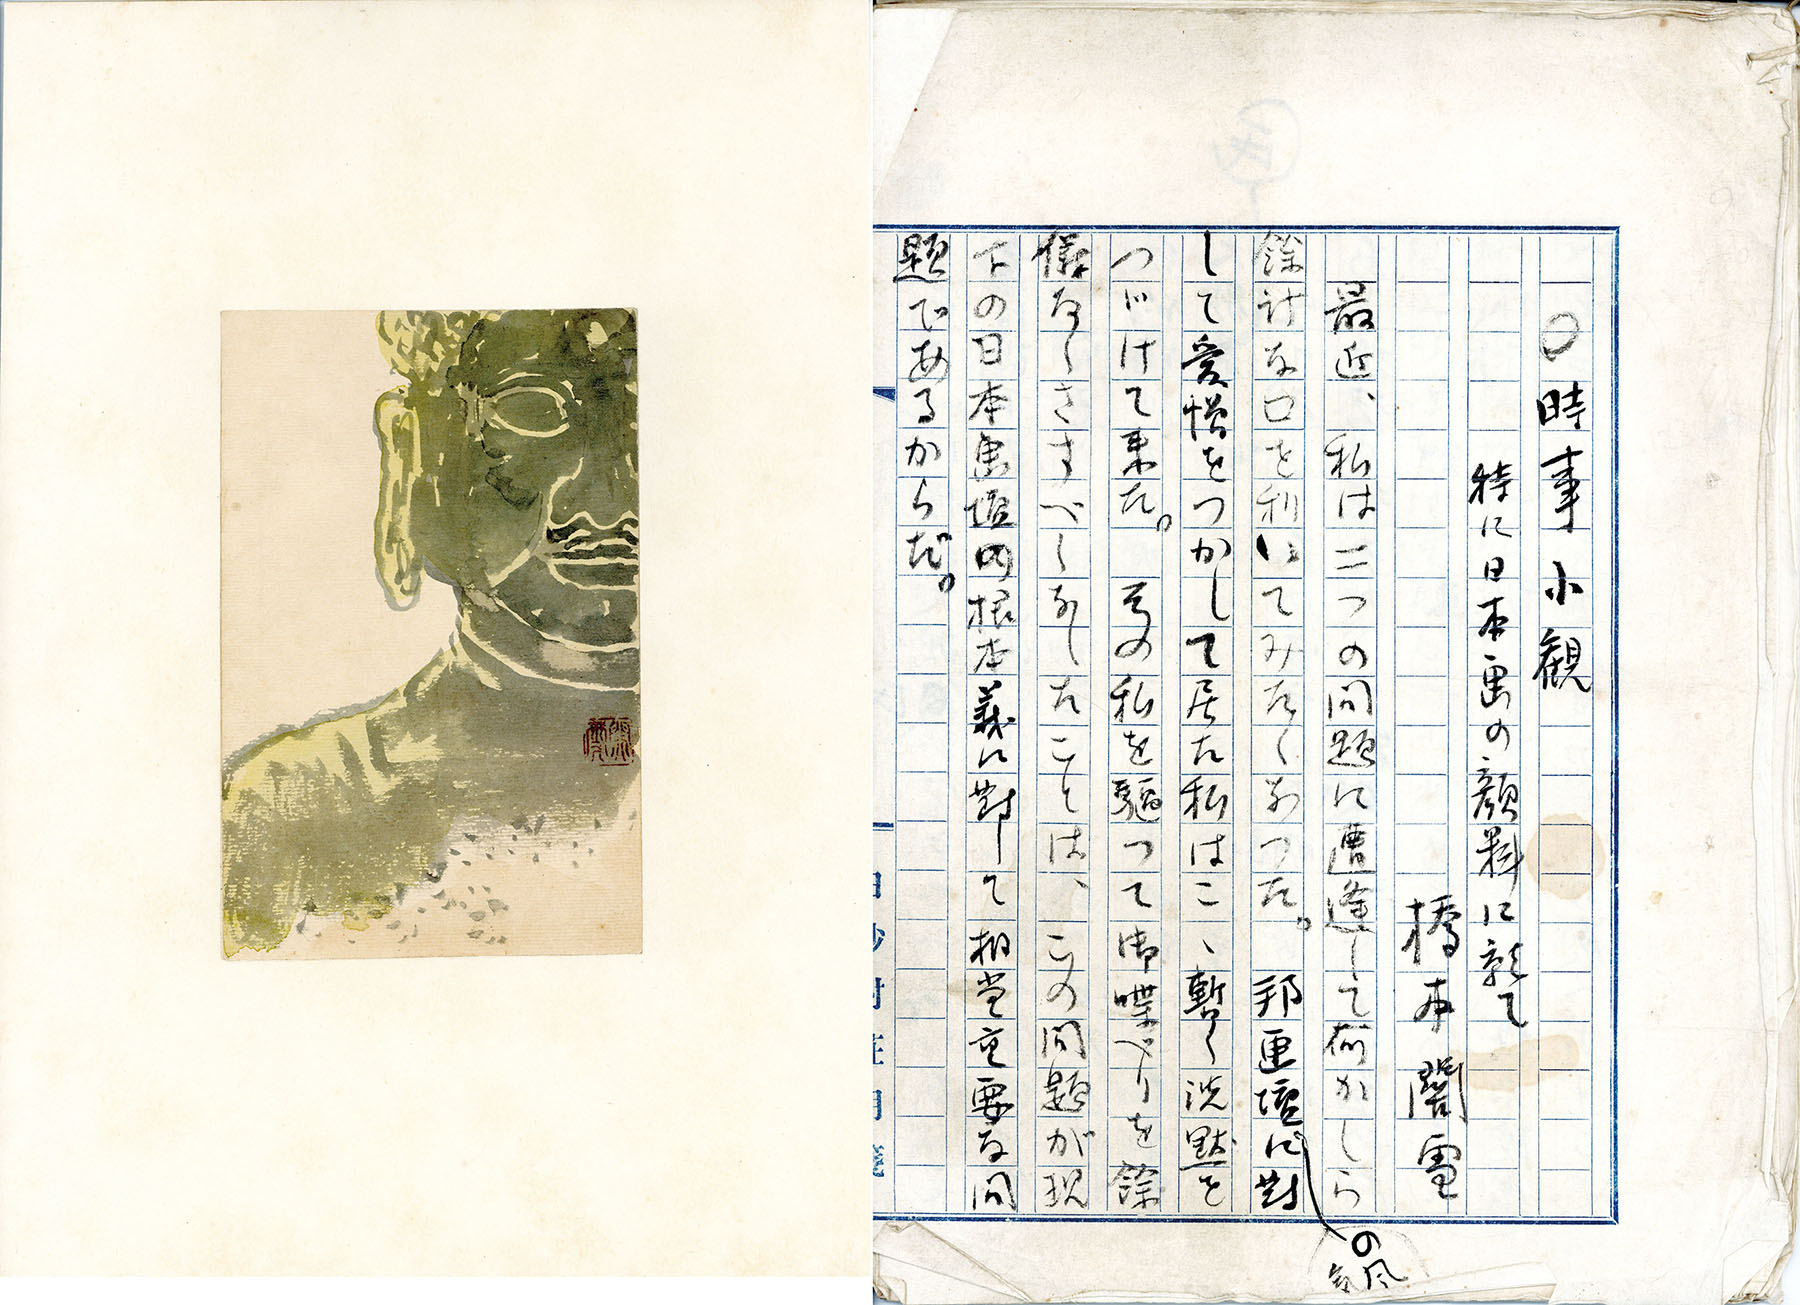 〇時事小観
特に日本画の顔料に就て
橋本關雪
最近、私は二つの問題に遭逢して何かしら
餘計な口を利いてみたくなつた。邦画壇に對
の風
気
して愛憎をつかして居た私はこゝ暫く沈黙を
つゞけて来た。其の私を驅つて御喋べりを餘
儀なくさすべくなしたことは、この問題が現
下の日本画壇の根本義に對して相当重要な問
題であるからだ。